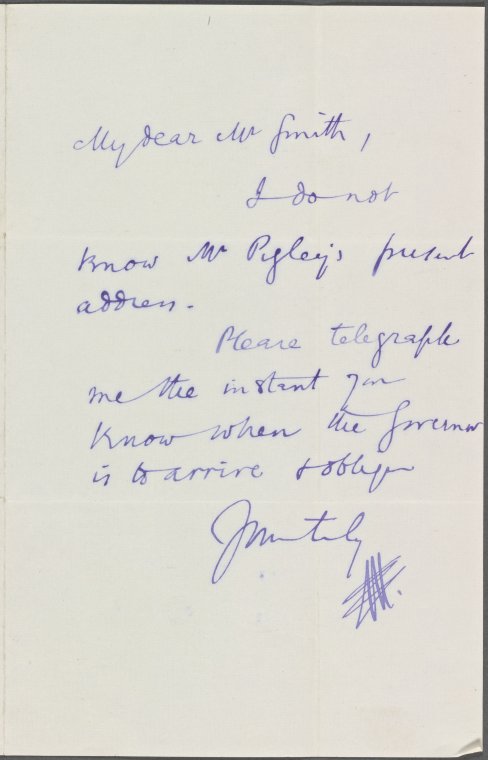 My dear Mr Smith,
I do not
know Mr Pigley's present
address.
Please telegraph
me the instant you
know when the Governor
is to arrive & oblige
Yours truly